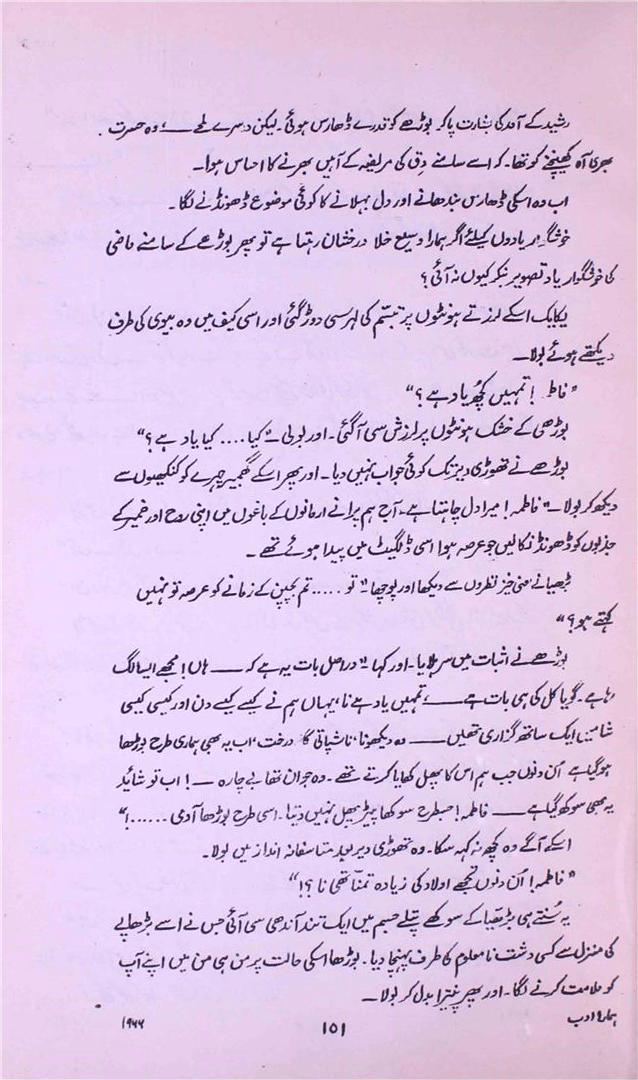 رشید کے آمد کی بشارت پا کر بوڑھے کو قدرے ڈھارس ہوئی۔ لیکن دسرے لمحے ــــ وہ حسرت
بھری آہ کھینچنے کو تھا۔ کہ اسے سامنے دِق کی مریضہ کے آہیں بھرنے کا احساس ہوا۔
اب وہ اسکی ڈھارس بندھانے اور دل بہلانے کا کوئی موضوع ڈھونڈنے لگا۔
خوشگوار یادوں کیلئے اگر ہمارا وسیع خلا درخشاں رہتا ہے تو پھر بوڑھے کے سامنے ماضی
کی خوشگوار یاد تصویر بنکر کیوں نہ آتی؟
یکایک اسکے لرزتے ہونٹوں پر تبسّم کی لہر سی دوڑ گئی اور اسی کیف میں وہ بیوی کی طرف
دیکھتے ہوئے بولا۔
"فاطمہ! تمہیں کچھ یاد ہے؟"
بوڑھی کے خشک ہونٹوں پر لرزش سی آ گئی۔ اور بولی "کیا .... کیا یاد ہے؟"
بوڑھے نے تھوڑی دیر تک کوئی جواب نہیں دیا۔ اور پھر اسکے گھمبیر چہرے کو کنکھیوں سے
دیکھ کر بولا۔ "فاطمہ! میرا دل چاہتا ہے۔ آج ہم پرانے ارمانوں کے باغوں میں اپنی روح اور ضمیر کے
جذبوں کو ڈھونڈ نکالیں جو عرصہ ہوا اسی ڈلگیٹ میں پیدا ہوئے تھے۔
بڑھیا نے معنی خیز نظروں سے دیکھا اور پوچھا "تو ..... تم بچپن کے زمانے کو عرصہ تو نہیں
کہتے ہو؟"
بوڑھے نے اثبات میں سر ہلایا۔ اور کہا "دراصل بات یہ ہے کہ ـــــ ہاں! مجھے ایسا لگ
رہا ہے۔ گویا کل کی ہی بات ہے ــــ، تمہیں یاد ہے نا، یہاں ہم نے کیسے کیسے دن اور کیسی کیسی
شامیں ایک ساتھ گزاری تھیں ـــــ وہ دیکھو نا، ناشپاتی کا درخت، اب یہ بھی ہماری طرح بوڑھا
ہو گیا ہے اُن دنوں جب ہم اس کا پھل کھایا کرتے تھے۔ وہ جوان تھا بے چارہ ــــ! اب تو شائید
یہ بھی سوکھ گیا ہے ــــ فاطمہ! جسطرح سوکھا پیڑ پھل نہیں دیتا۔ اسی طرح بوڑھا آدمی ......!"
اسکے آگے وہ کچھ نہ کہہ سکا۔ وہ تھوڑی دیر بعد متاسفانہ انداز میں بولا۔
"فاطمہ! اُن دنوں تجھے اولاد کی زیادہ تمنّا تھی نا؟!"
یہ سُنتے ہی بڑھیا کے سوکھے پتلے جسم میں ایک تند آندھی سی آئی جس نے اسے بڑھاپے
کی منزل سے کسی دشت نا معلوم کی طرف پہنچا دیا۔ بوڑھا اسکی حالت پر من ہی من میں اپنے آپ
کو ملامت کرنے لگا۔ اور پھر پینترا بدل کر بولا۔
ہمارا ادب ۱۵۱ ۱۹۶۶